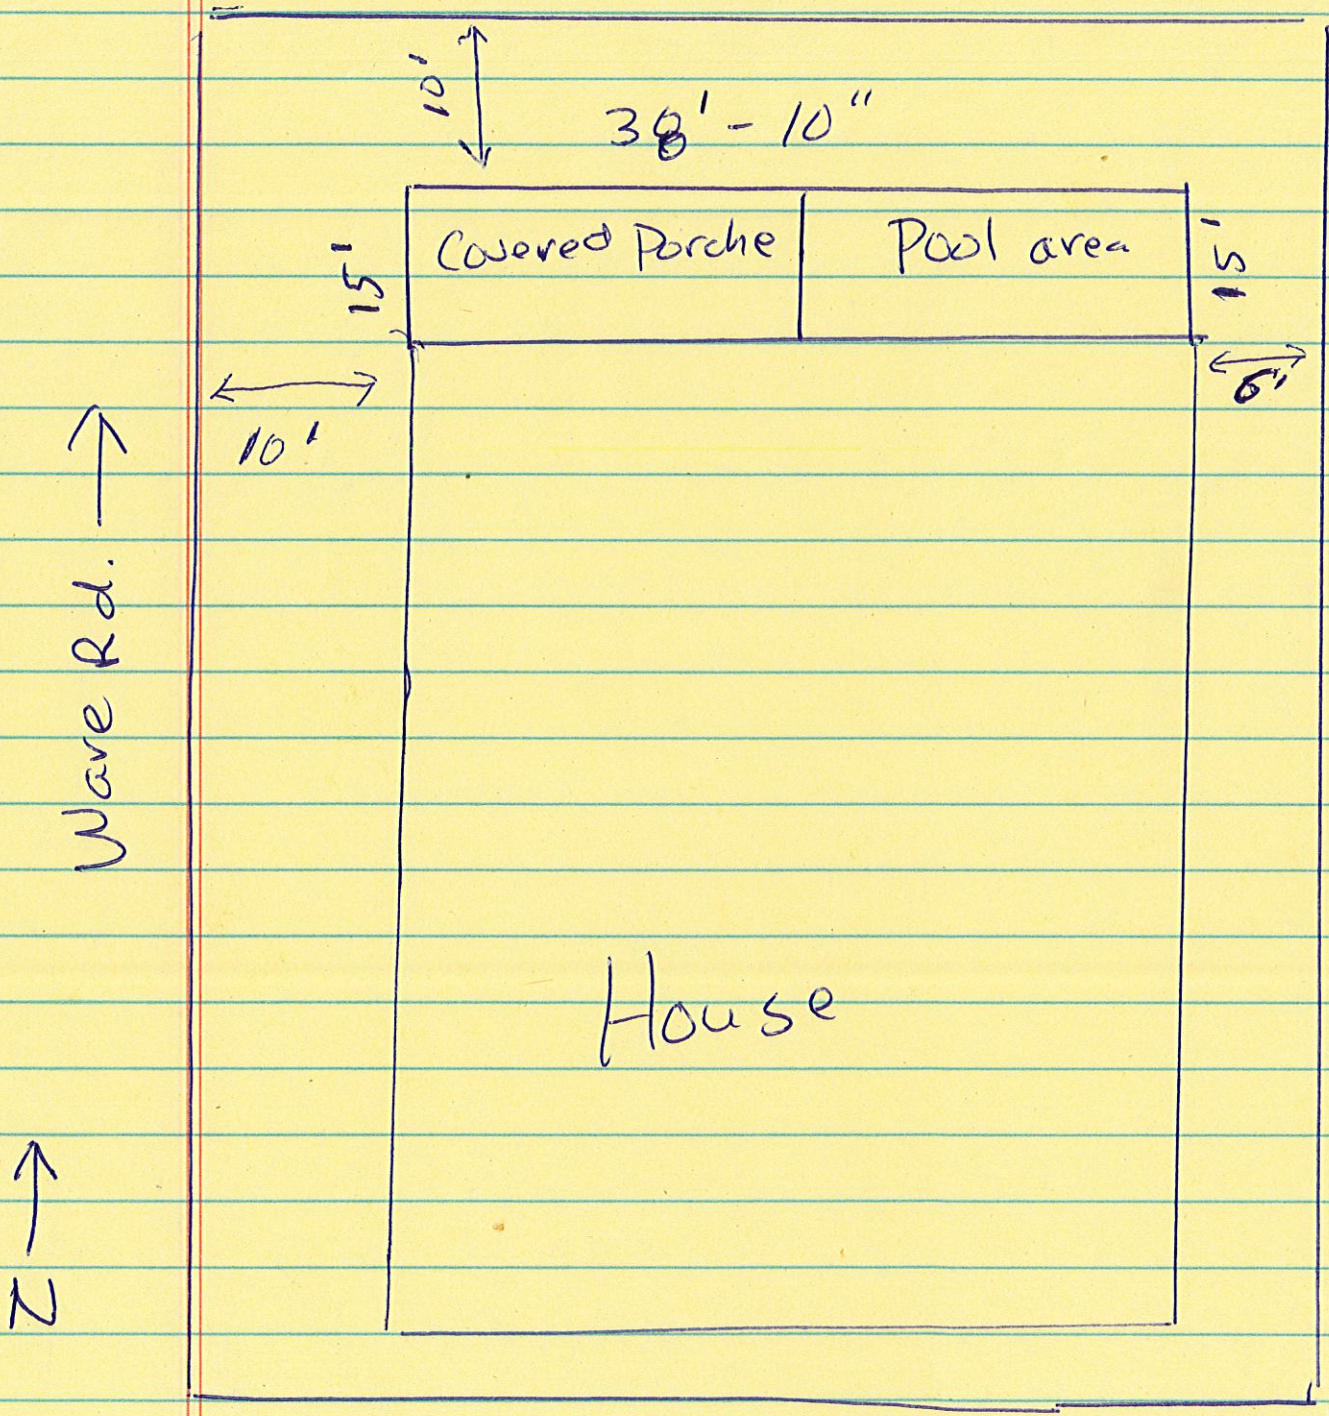 10'
38' - 10"
Covered Porche
Pool area
15'
15'
10'
6'
Ware Rd.
House
N